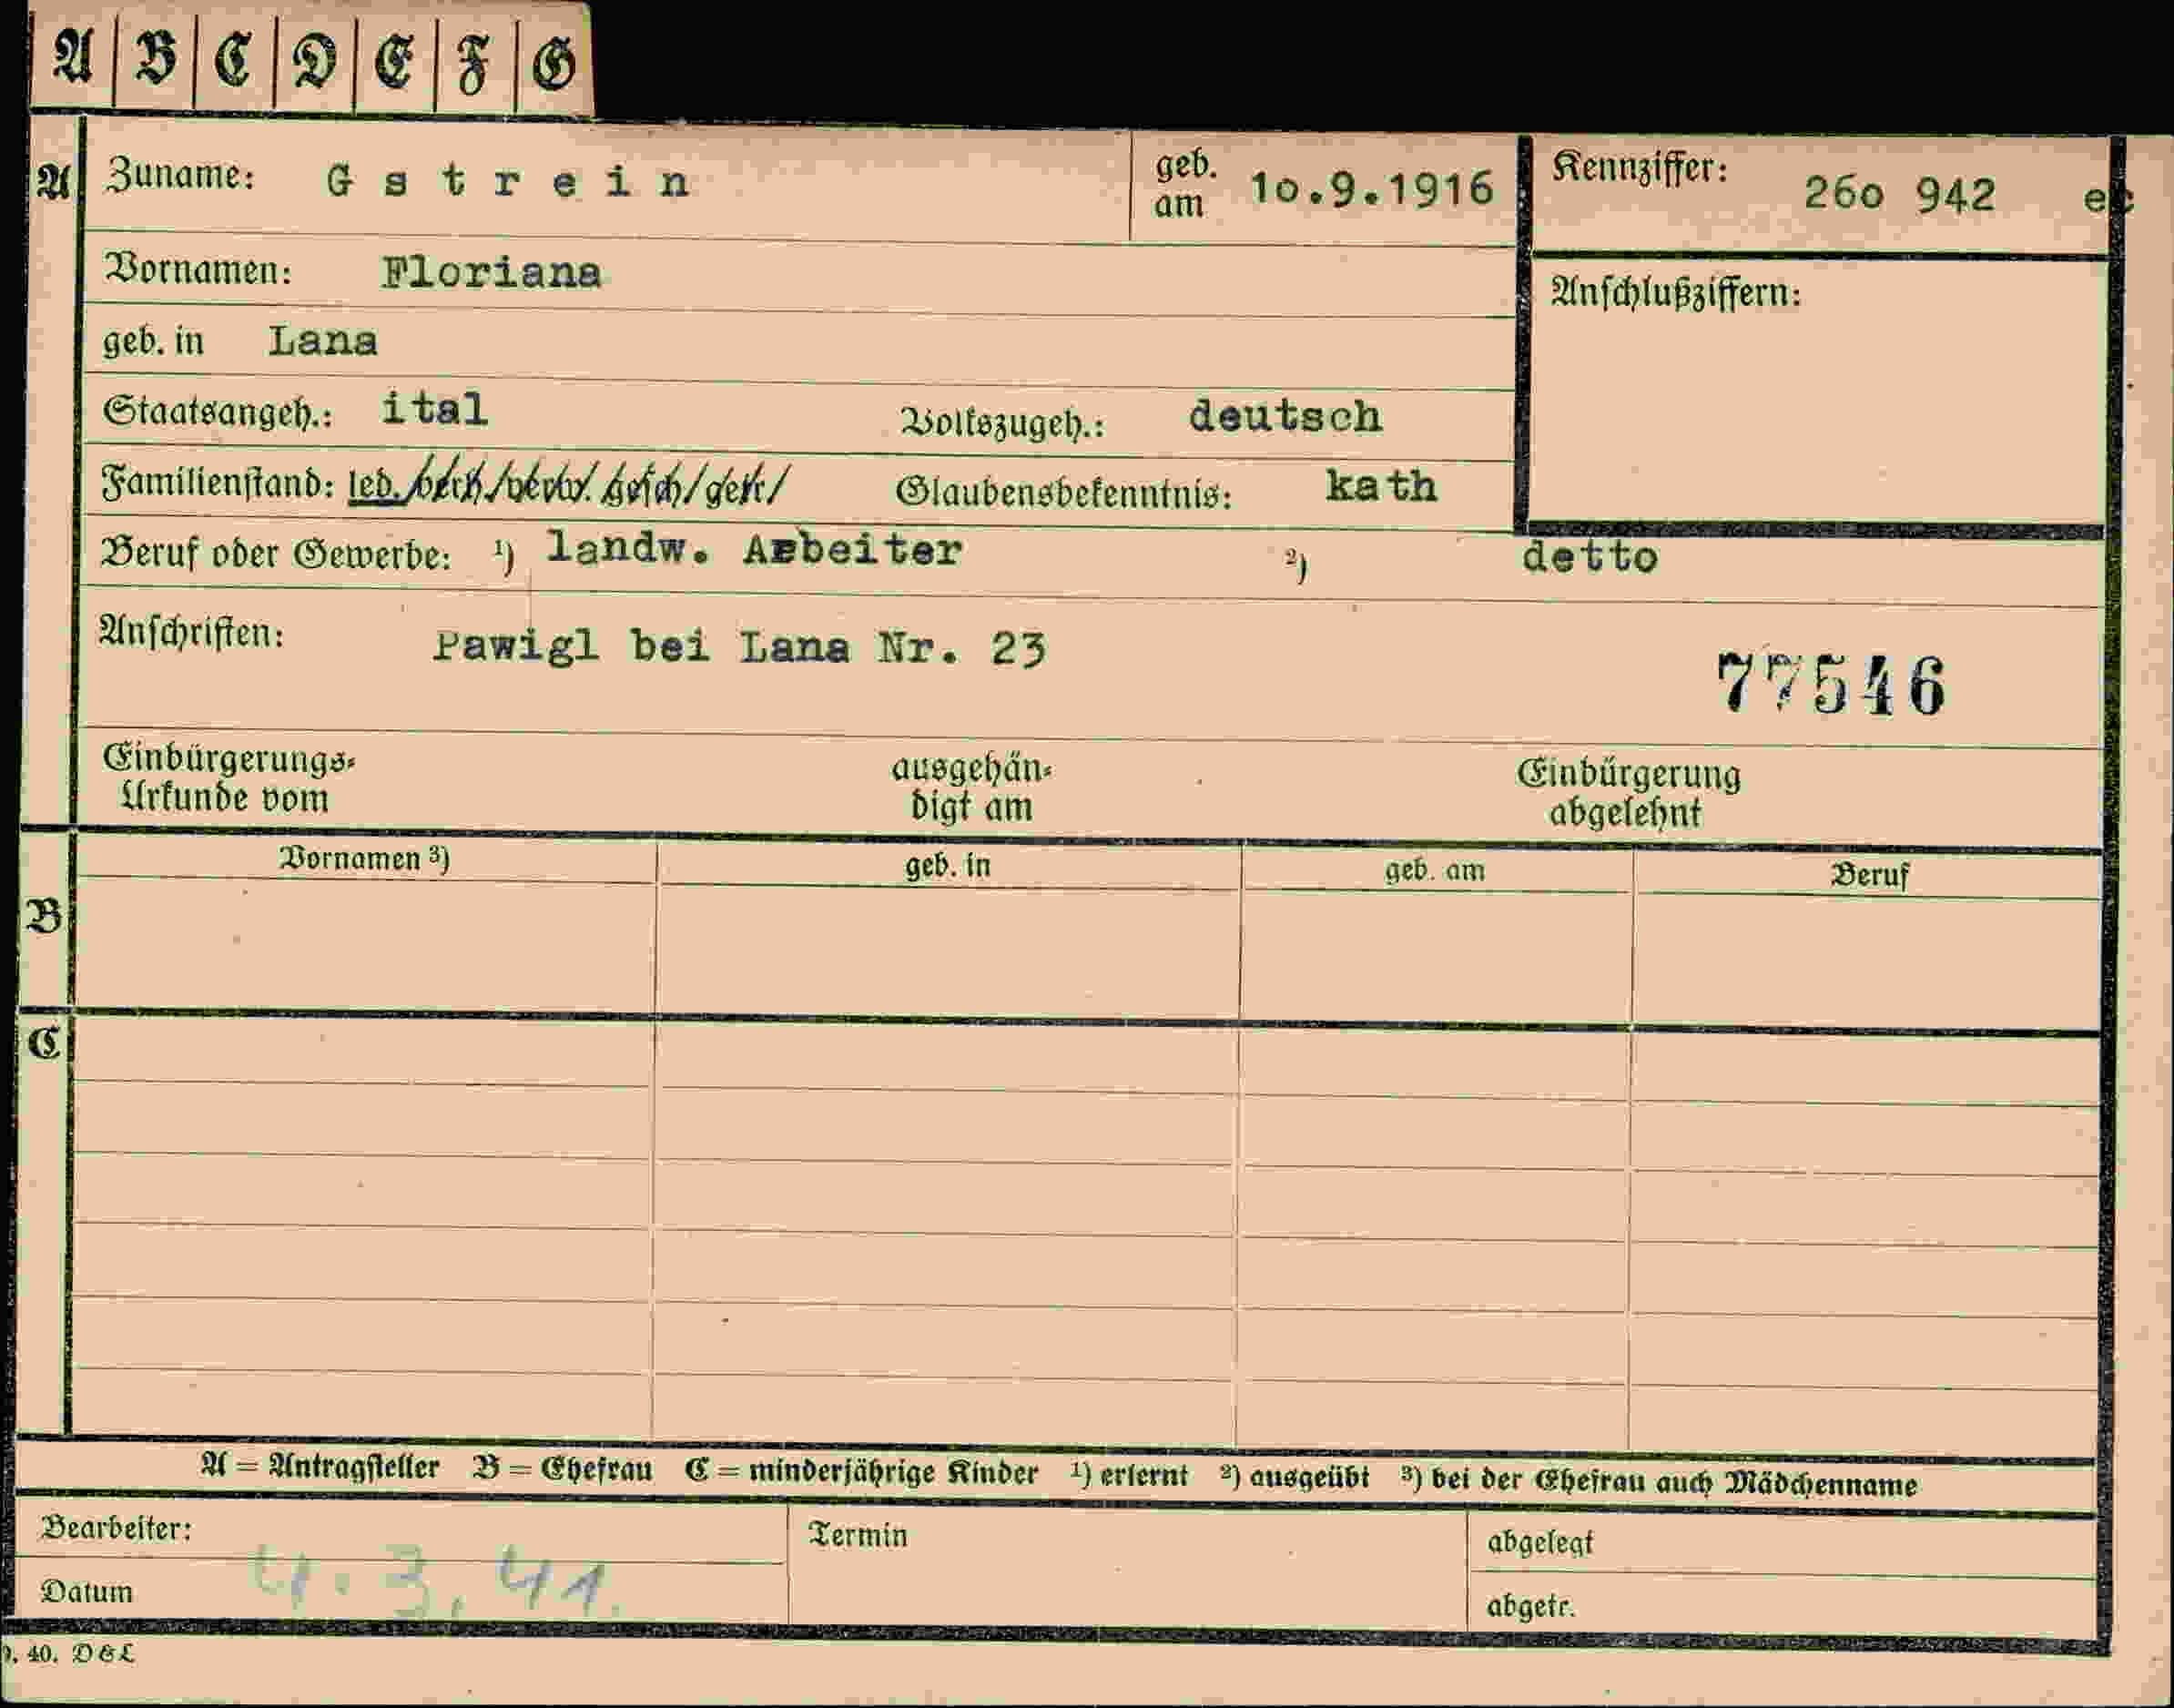 A B C D E F G
A Zuname: Gstrein geb. am 10.9.1916 Kennziffer: 260 942 ec
Vornamen: Floriana Anschlußziffern:
geb. in Lana
Staatsangeh.: ital Volkszugeh.: deutsch
Familienstand: led./verh./verw./gesch/getr/ Glaubensbekenntnis: kath
Beruf oder Gewerbe: 1) landw. Arbeiter 2) detto
Anschriften: Pawigl bei Lana Nr. 23
77546
Einbürgerungs- ausgehän- Einbürgerung
Urkunde vom digt am abgelehnt
B Vornamen 3) geb. in geb. am Beruf
C
A = Antragsteller B = Ehefrau C = minderjährige Kinder 1) erlernt 2) ausgeübt 3) bei der Ehefrau auch Mädchenname
Bearbeiter: Termin abgelegt
Datum 4.3.41. abgetr.
40. D&L